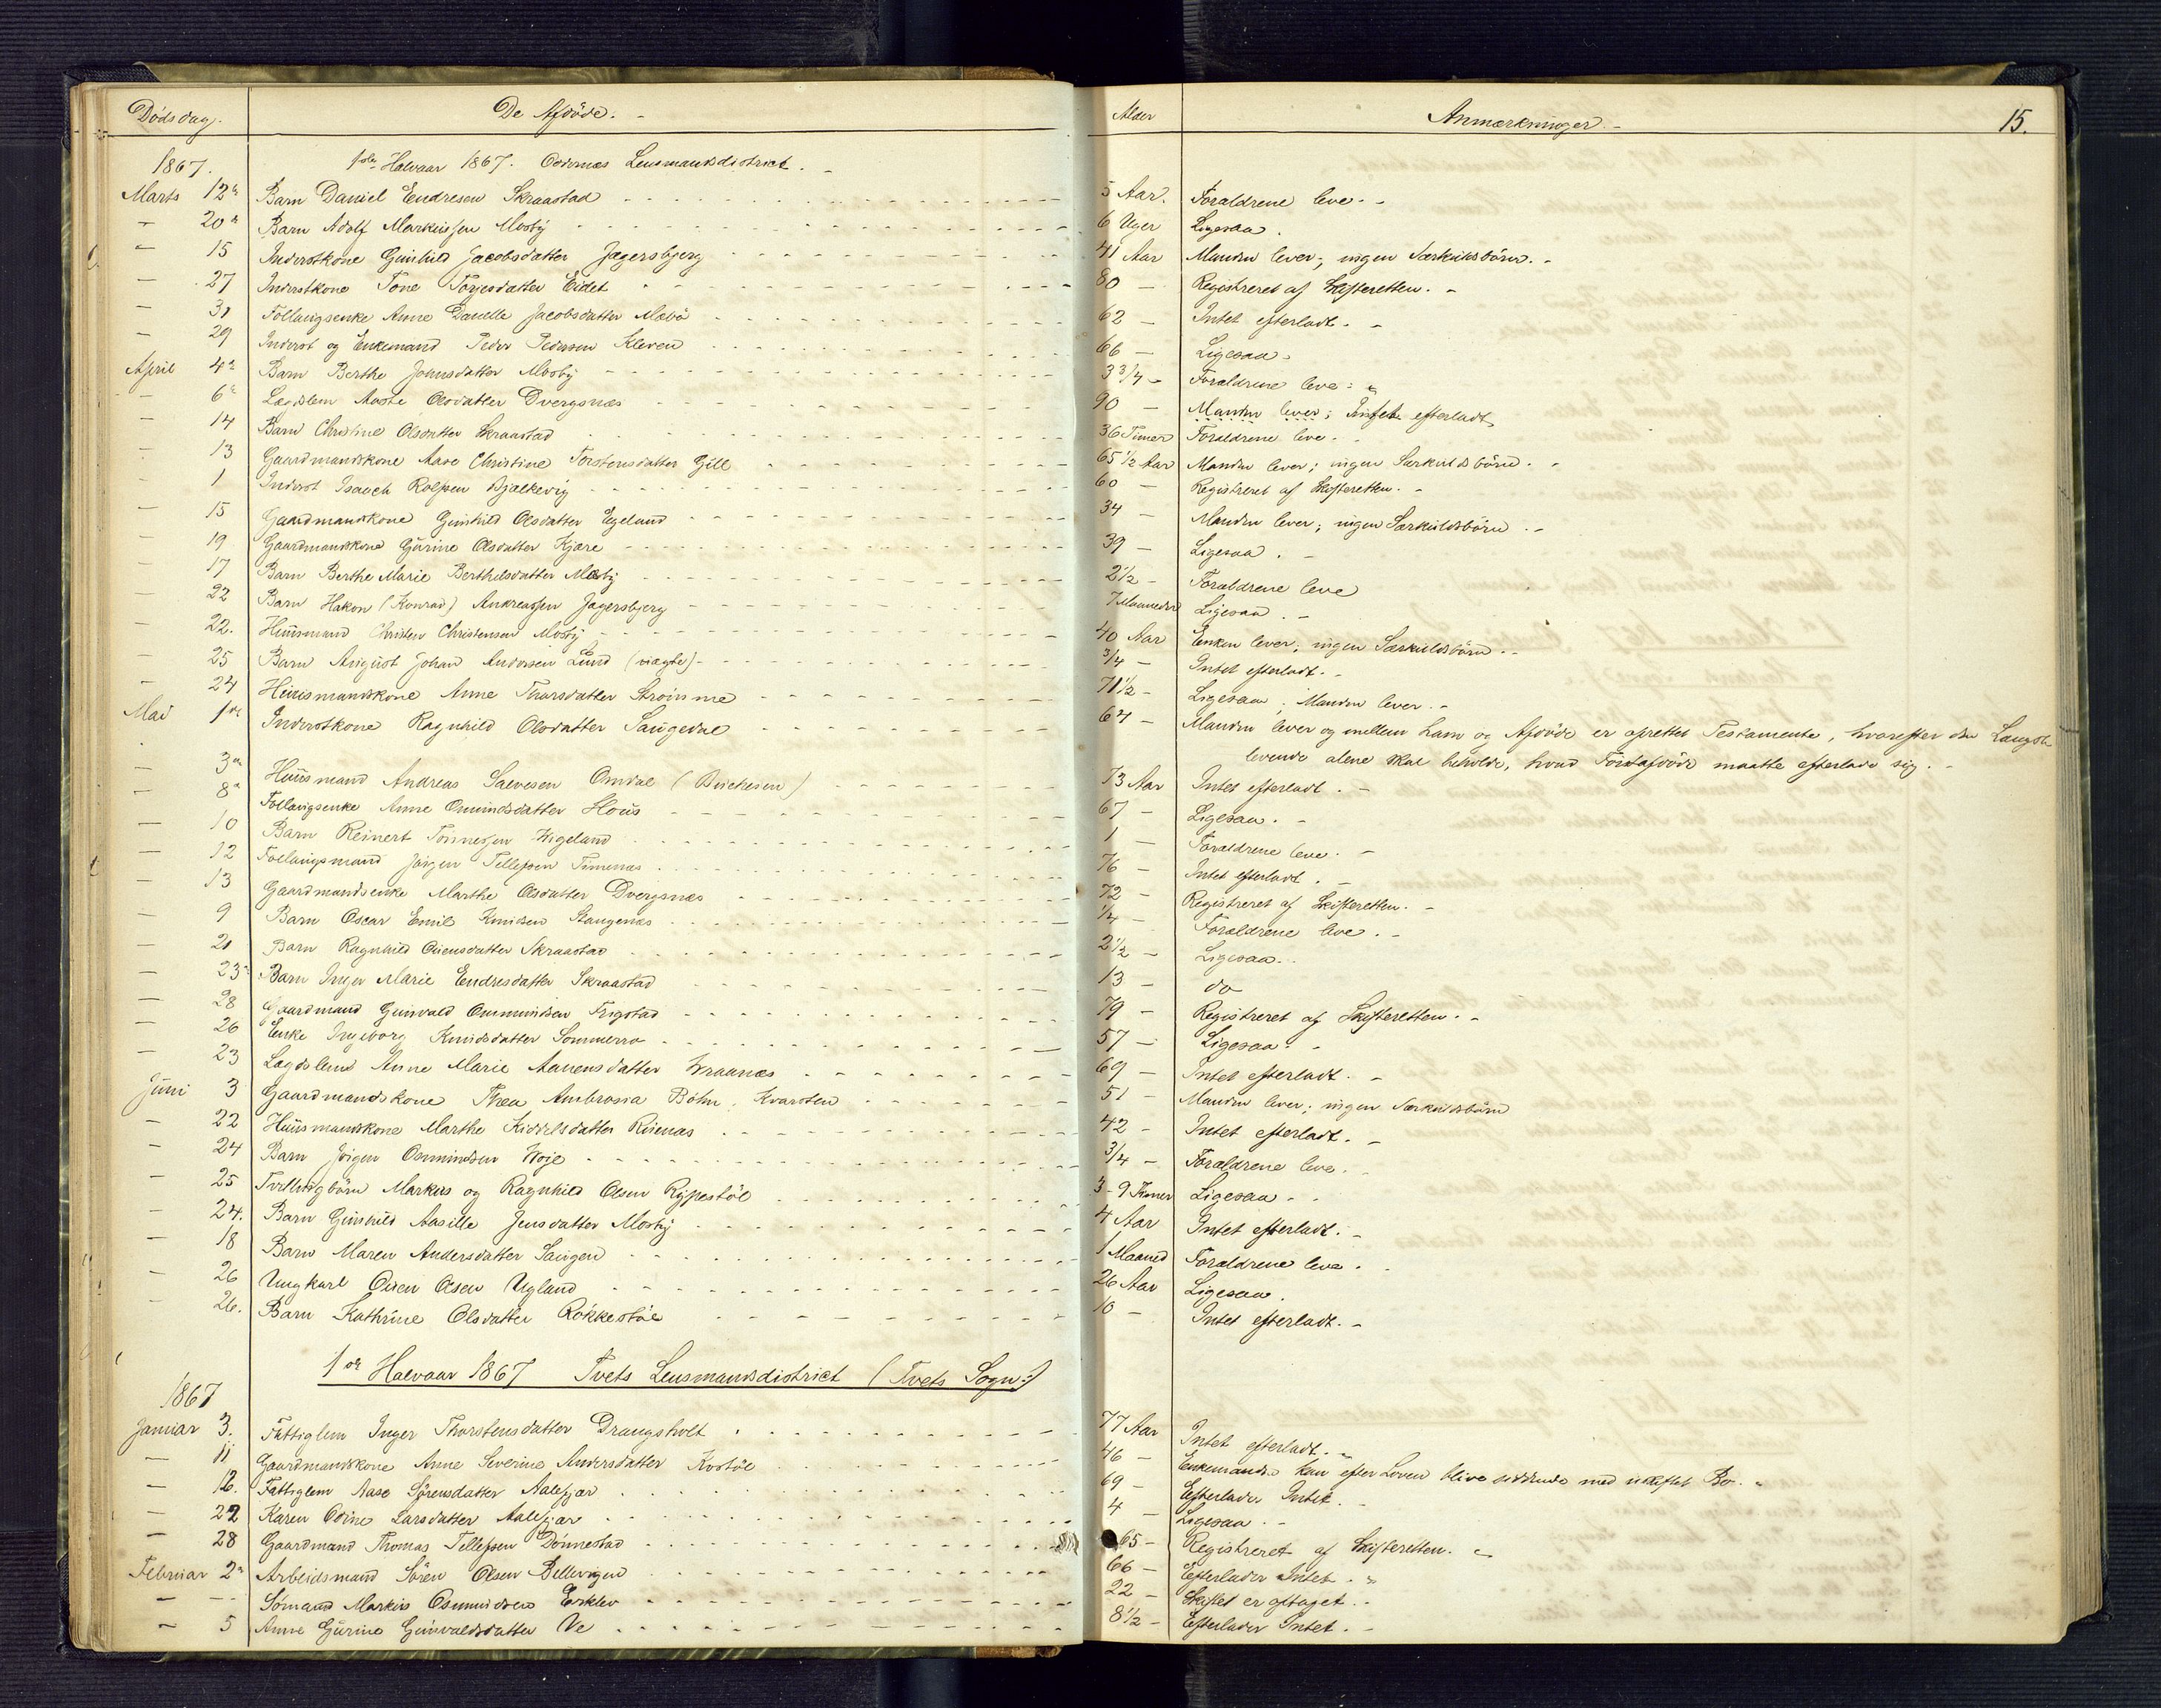 Dødsdag. De Afdøde. Alder Anmærkninger. 15.
1867. 1ste Halvaar 1867. Oddernes Lensmansdistrict.
Marts 12te Barn Daniel Endresen Skraastad 5 Aar. Forældrene leve.
– 20de Barn Adolf Markussen Mosby 6 Uger Ligesaa.
– 15 Inderstkone Gunhild Jacobsdatter Jægersbjerg 41 Aar Manden lever; ingen Særkuldsbørn.
– 27 Inderstkone Tone Torjesdatter Eidet 80 – Registreret af Skifteretten.
– 31 Follaugsenke Anne Danelle Jacobsdatter Mæbø 62 – Intet efterladt.
– 29 Inderst og Enkemand Peder Pedersen Kleven 66 – Ligesaa
April 4de Barn Berthe Johnsdatter Mosby 3 3/4 – Forældrene leve
– 6te Lægdslem Aaste Olsdatter Dvergsnæs 90 – Manden lever; Intet efterladt
– 14 Barn Christine Olsdatter Skraastad 36 Timer Forældrene leve.
– 13 Gaardmandskone Aase Christine Torstensdatter Gill 65 1/2 Aar Manden lever; ingen Særkuldsbørn.
– 1 Inderst Isaach Rolfsen Bjelkevig 60 – Registreret af Skifteretten.
– 15 Gaardmandskone Gunhild Olsdatter Egeland 34 – Manden lever; ingen Særkuldsbørn.
– 19 Gaardmandskone Gurine Olsdatter Kjære 39 – Ligesaa.
– 17 Barn Berthe Marie Berthelsdatter Mosby 2 1/2 – Forældrene leve
– 22 Barn Hakon (Konrad) Andreassen Jægersbjerg 7 Maaneder Ligesaa.
– 22. Huusmand Christen Christensen Mosby 40 Aar Enken lever; ingen Særkuldsbørn.
– 25 Barn August Johan Andersen Lund (uægte) 3/4 – Intet efterladt.
– 24 Huusmandskone Anne Thorsdatter Strømme 71 1/2 – Ligesaa; Manden lever.
Mai 1ste Inderstkone Ragnhild Olsdatter Saugedal 64 – Manden lever og mellem ham og Afdøde er oprettet Testamente, hvorefter den Længst-
levende alene skal beholde, hvad Førstafdøde maatte efterlade sig.
– 3die Huusmand Andreas Salvesen Omdal ( ) 73 Aar Intet efterladt.
– 8de Follaugsenke Anne Omundsdatter Hous 67 – Ligesaa.
– 10 Barn Reinert Tønnessen Wigeland 1 – Forældrene leve.
– 12 Follaugsmand Jørgen Tellefsen Timenes 76 – Intet efterladt.
– 13 Gaardmandsenke Marthe Olsdatter Dvergsnæs 72 – Registreret af Skifteretten.
– 9 Barn Oscar Emil Knudsen Stangenæs 1/4 – Forældrene leve.
– 21 Barn Ragnhild Ouensdatter Skraastad 2 1/2 – Ligesaa.
– 23de Barn Inger Marie Endresdatter Skraastad 13 – do
– 28 Gaardmand Gunvald Ommundsen Frigstad 79 – Registreret af Skifteretten.
– 26 Enke Ingeborg Knudsdatter Sommerro 57 – Ligesaa.
– 23 Lægdslem Anne Marie Aanensdatter Wraanæs 69 – Intet efterladt.
Juni 3 Gaardmandskone Thea Ambrosia Bøhn, Kvarsten 51 – Manden lever; ingen Særkuldsbørn
– 22 Huusmandskone Marthe Kiddelsdatter Ruenæs 42 – Intet efterladt.
– 24 Barn Jørgen Ommundsen Woje 3/4 – Forældrene leve.
– 25 Tvillingbørn Markus og Ragnhild Olsen Rypestøl 3-9 Timer Ligesaa.
– 24. Barn Gunhild Aasille Jensdatter Mosby 4 Aar Intet efterladt.
– 18 Barn Maren Andersdatter Saugen 1 Maaned Forældrene leve.
– 26 Ungkarl Ouen Olsen Ugland 26 Aar Ligesaa.
– 26. Barn Kathrine Olsdatter Rokkestøl 10 – Intet efterladt.
1ste Halvaar 1867 Tvets Lensmansdistrict (Tvets Sogn:)
1867
Januar 3. Fattiglem Inger Thorstensdatter Drangsholt 77 Aar Intet efterladt.
– 11 Gaardmandskone Anne Severine Andersdatter Kostøl 46 – Enkemanden kan efter Loven blive siddende med uskiftet Bo.
– 12. Fattiglem Aase Sørensdatter Aalefjær 69 – Efterlader Intet.
– 22 Karen Odine Larsdatter Aalefjær 4 – Ligesaa.
– 28 Gaardmand Thomas Tellefsen Dønnestad 65 – Registreret af Skifteretten.
Februar 2den Arbeidsmand Søren Olsen Bellevigen 66 – Efterlader Intet.
– – Sømand Markus Osmundsen Eskler 22 – Skiftet er optaget.
– 5 Anne Gurine Gunvaldsdatter Ve 8 1/2 – Efterlader Intet.